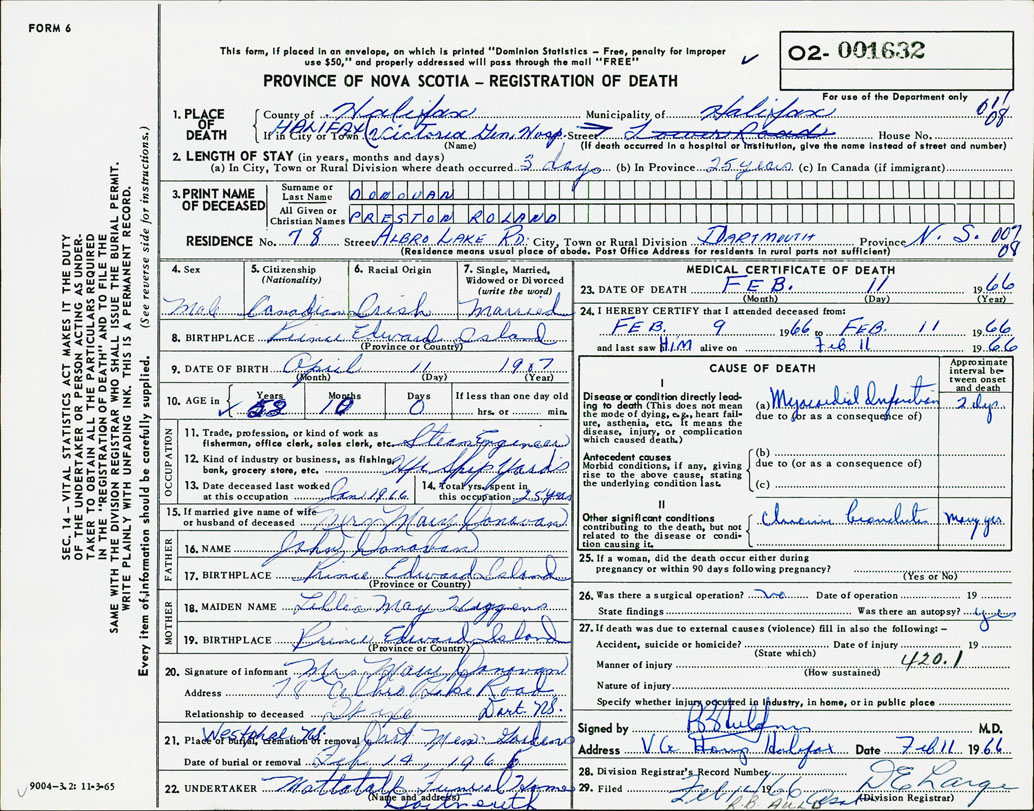 FORM 6
This form, if placed in an envelope, on which is printed "Dominion Statistics – Free, penalty for improper
use $50," and properly addressed will pass through the mail "FREE"
PROVINCE OF NOVA SCOTIA – REGISTRATION OF DEATH
O2- 001632
For use of the Department only
011
08
1. PLACE OF DEATH
County of Halifax Municipality of Halifax
If in City or Town HALIFAX (Victoria Gen. Hosp. Street House No.
(Name) (If death occurred in a hospital or institution, give the name instead of street and number)
2. LENGTH OF STAY (in years, months and days)
(a) In City, Town or Rural Division where death occurred 3 days (b) In Province 25 years (c) In Canada (if immigrant)
3. PRINT NAME OF DECEASED
Surname or Last Name DONOVAN
All Given or Christian Names PRESTON ROLAND
RESIDENCE No. 78 Street ALBRO LAKE RD. City, Town or Rural Division DARTMOUTH Province N. S. 007
08
(Residence means usual place of abode. Post Office Address for residents in rural parts not sufficient)
4. Sex Male
5. Citizenship (Nationality) Canadian
6. Racial Origin Irish
7. Single, Married, Widowed or Divorced (write the word) Married
8. BIRTHPLACE Prince Edward Island
(Province or Country)
9. DATE OF BIRTH April 11 1907
(Month) (Day) (Year)
10. AGE in Years 58 Months 10 Days 0 If less than one day old
hrs. or min.
OCCUPATION
11. Trade, profession, or kind of work as
fisherman, office clerk, sales clerk, etc. Steam Engineer
12. Kind of industry or business, as fishing,
bank, grocery store, etc. Hfx Ship Yards
13. Date deceased last worked
at this occupation Jan 1966
14. Total yrs. spent in
this occupation 25 years
15. If married give name of wife
or husband of deceased Mrs Mary Donovan
FATHER
16. NAME John Donovan
17. BIRTHPLACE Prince Edward Island
(Province or Country)
MOTHER
18. MAIDEN NAME Lillia May Haggens
19. BIRTHPLACE Prince Edward Island
(Province or Country)
20. Signature of informant Mrs Mary Donovan
Address 78 Albro Lake Road
Relationship to deceased Dart. NS.
21. Place of burial, cremation or removal Westphal NS. Dart Mem. Gardens
Date of burial or removal Feb 14, 1966
22. UNDERTAKER Mattatall Funeral Home
(Name and address) Dartmouth
MEDICAL CERTIFICATE OF DEATH
23. DATE OF DEATH FEB. 11 1966
(Month) (Day) (Year)
24. I HEREBY CERTIFY that I attended deceased from:
FEB. 9 1966 to FEB. 11 1966
and last saw HIM alive on Feb 11 1966
CAUSE OF DEATH
Approximate interval between onset and death
I
Disease or condition directly leading to death (This does not mean the mode of dying, e.g., heart failure, asthenia, etc. It means the disease, injury, or complication which caused death.)
(a) Myocardial Infarction 2 dys.
due to (or as a consequence of)
Antecedent causes
Morbid conditions, if any, giving rise to the above cause, stating the underlying condition last.
(b)
due to (or as a consequence of)
(c)
II
Other significant conditions
contributing to the death, but not related to the disease or condition causing it.
Chronic bronchitis many yrs.
25. If a woman, did the death occur either during
pregnancy or within 90 days following pregnancy?
(Yes or No)
26. Was there a surgical operation? no Date of operation 19
State findings Was there an autopsy? yes
27. If death was due to external causes (violence) fill in also the following:–
Accident, suicide or homicide? Date of injury 19
(State which)
Manner of injury 420.1
(How sustained)
Nature of injury
Specify whether injury occurred in industry, in home, or in public place
Signed by M.D.
Address V.G. Hosp Halifax Date Feb 11 1966
28. Division Registrar's Record Number
29. Filed Feb 12 1966 D E Large
(Division Registrar)
R.B. AULD
SEC. 14 – VITAL STATISTICS ACT MAKES IT THE DUTY
OF THE UNDERTAKER OR PERSON ACTING AS UNDER-
TAKER TO OBTAIN ALL THE PARTICULARS REQUIRED
IN THE "REGISTRATION OF DEATH" AND TO FILE THE
SAME WITH THE DIVISION REGISTRAR WHO SHALL ISSUE THE BURIAL PERMIT.
WRITE PLAINLY WITH UNFADING INK. THIS IS A PERMANENT RECORD.
Every item of information should be carefully supplied. (See reverse side for instructions.)
9004-3.2: 11-3-65